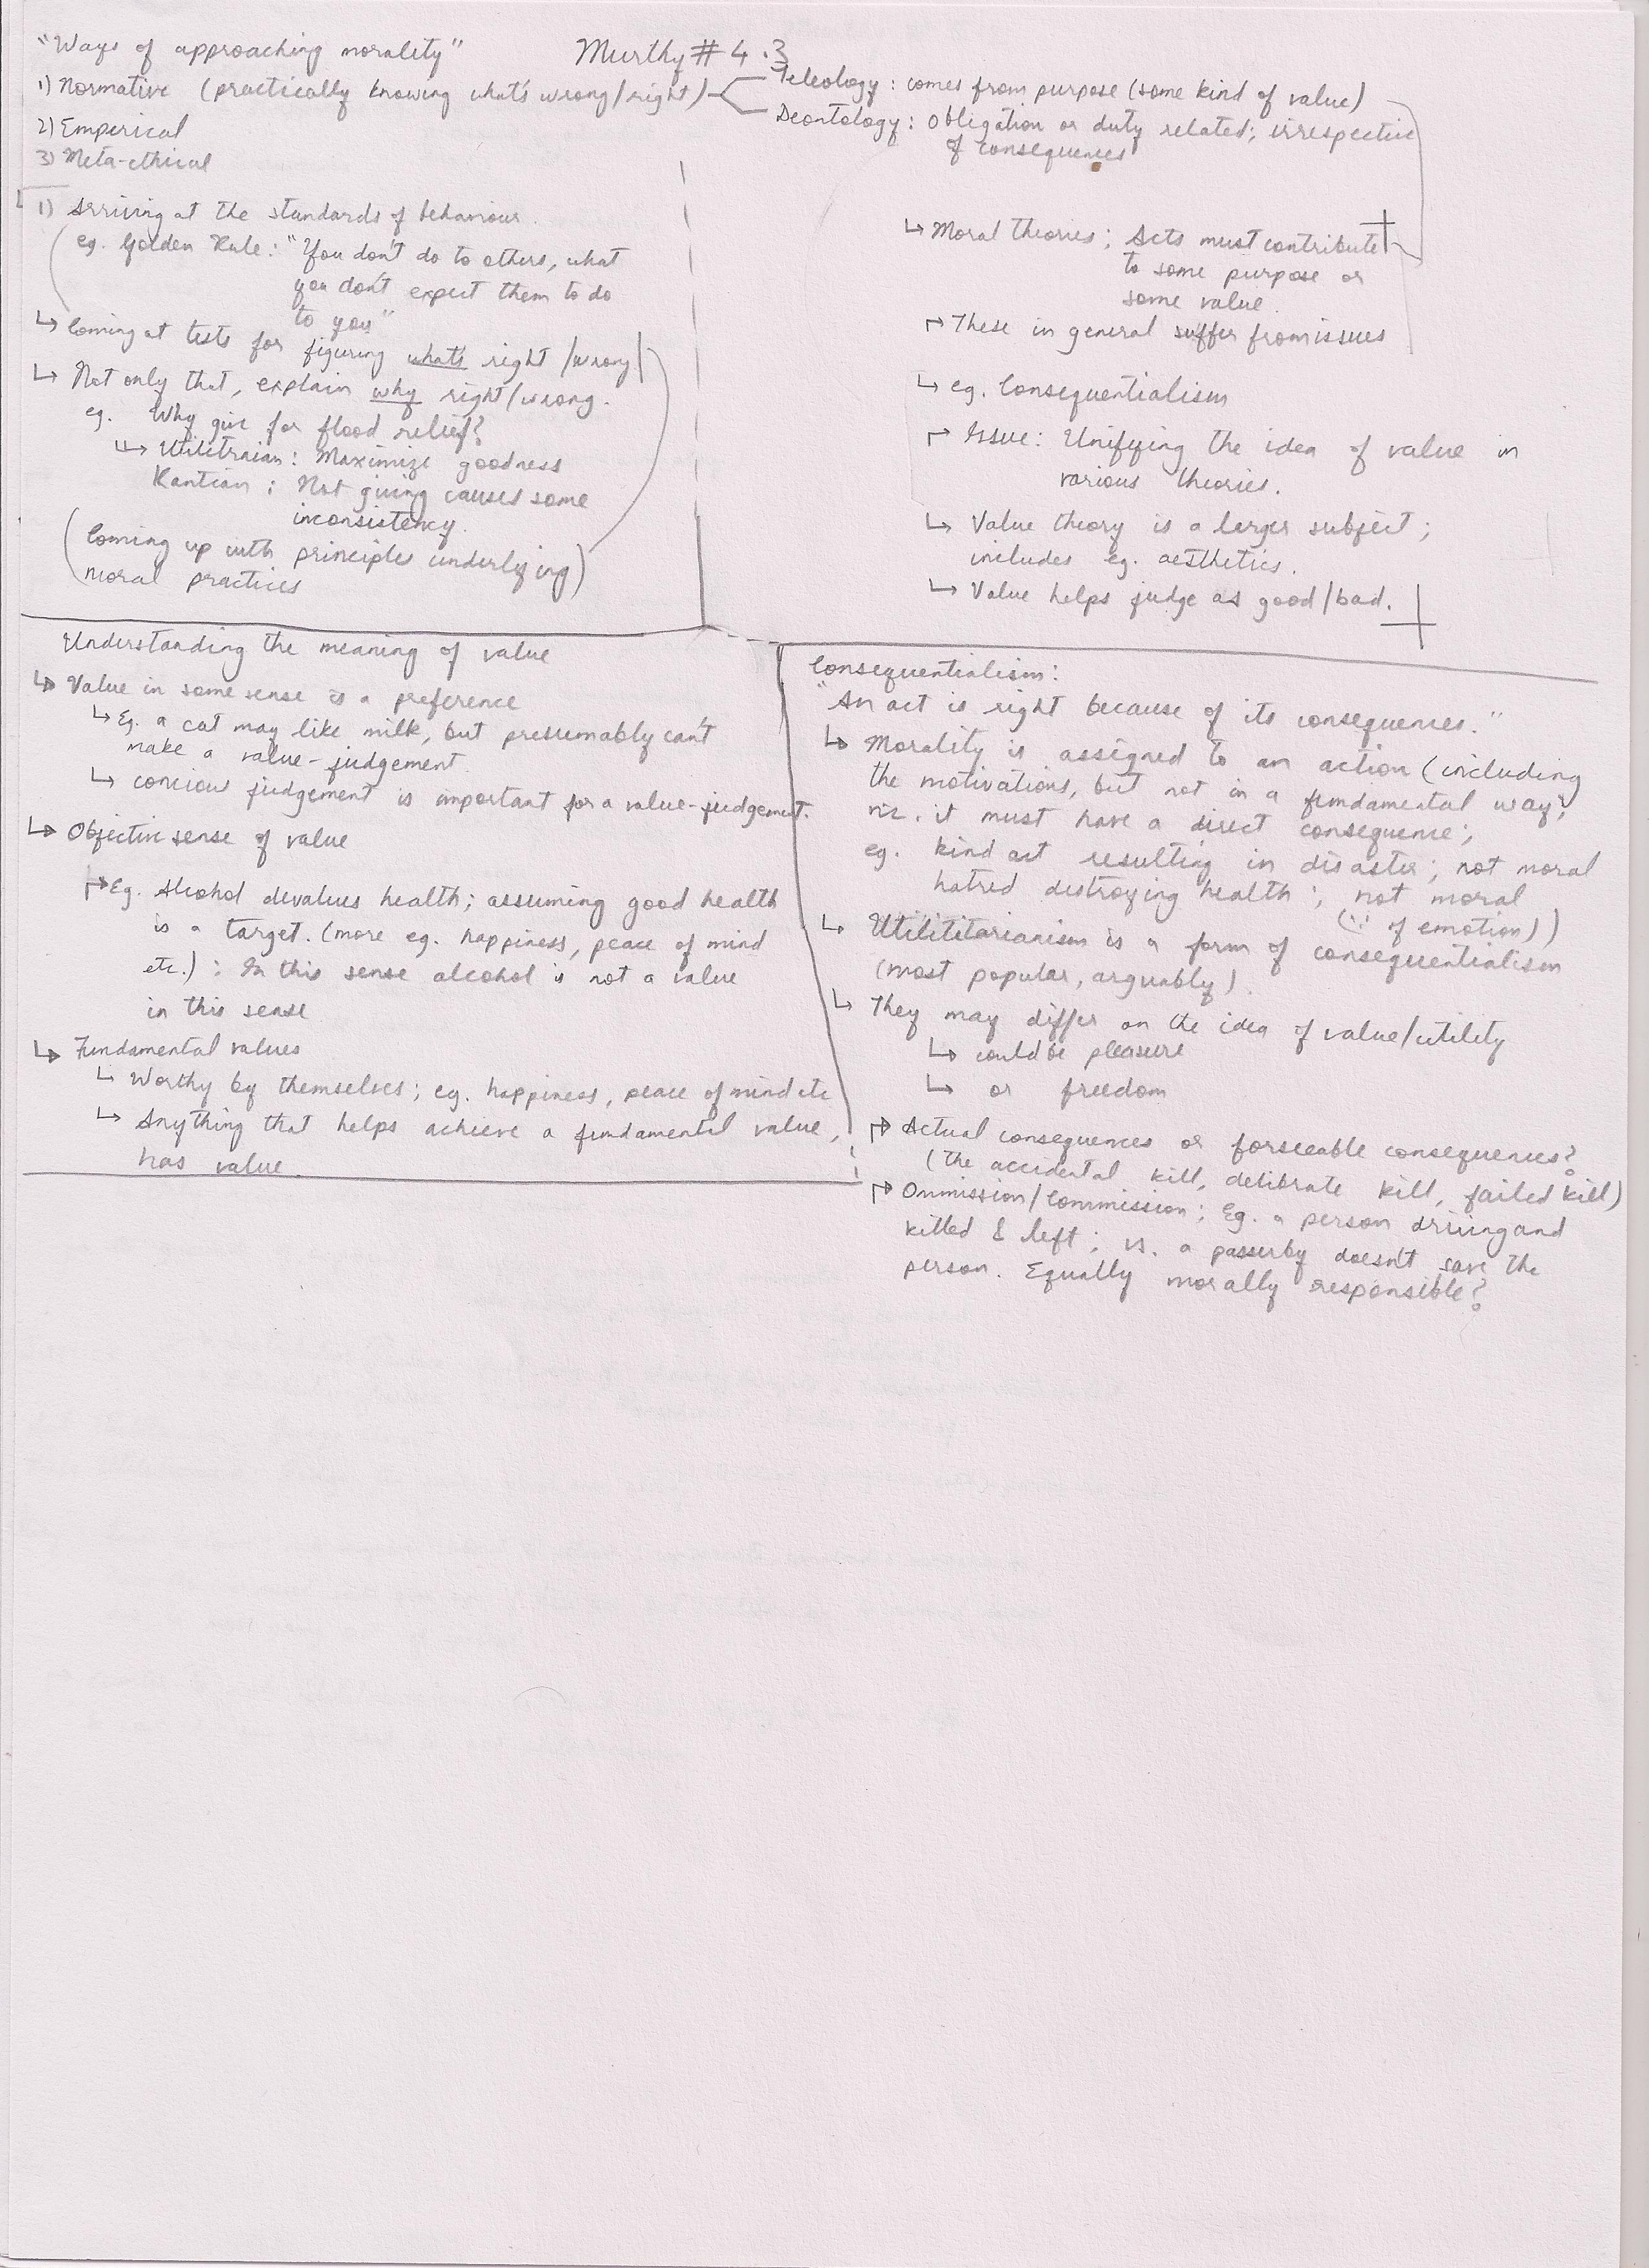 "Ways of approaching morality"
Murthy # 4.3
1) Normative (practically knowing what's wrong/right)
Teleology : comes from purpose (some kind of value)
Deontology : Obligation or duty related; irrespective
of consequences
2) Emperical
3) Meta-ethical
1) Arriving at the standards of behaviour.
eg. Golden Rule: "You don't do to others, what
you don't expect them to do
to you"
↳ Coming at tests for figuring what's right/wrong
↳ Not only that, explain why right/wrong.
eg. Why give for flood relief?
↳ Utilitraian: Maximize goodness
Kantian : Not giving causes some
inconsistency.
(Coming up with principles underlying)
moral practices
↳ Moral theories ; Acts must contribute
to some purpose or
some value.
↱ These in general suffer from issues
↳ eg. Consequentialism
↱ Issue: Unifying the idea of value in
various theories.
↳ Value theory is a larger subject;
includes eg. aesthetics.
↳ Value helps judge as good/bad.
Understanding the meaning of value
↳ Value in some sense is a preference
↳ Eg. a cat may like milk, but presumably can't
make a value-judgement.
↳ concious judgement is important for a value-judgement.
↳ Objective sense of value
↱ Eg. Alcohol devalues health; assuming good health
is a target. (more eg. happiness, peace of mind
etc.) ; In this sense alcohol is not a value
in this sense
↳ Fundamental values
↳ Worthy by themselves; eg. happiness, peace of mind etc
↳ Anything that helps achieve a fundamental value,
has value.
Consequentialism:
"An act is right because of its consequences."
↳ Morality is assigned to an action (including
the motivations, but not in a fundamental way;
viz. it must have a direct consequence;
eg. kind act resulting in disaster; not moral
hatred destroying health ; not moral
(∵ of emotion))
↳ Utilititarianism is a form of consequentialism
(most popular, arguably).
↳ They may differ on the idea of value/utility
↳ could be pleasure
↳ or freedom
↱ Actual consequences or forseeable consequences?
(the accidental kill, delibrate kill, failed kill)
↱ Ommission/Commission; Eg. a person driving and
killed & left ; vs. a passerby doesn't save the
person. Equally morally responsible?